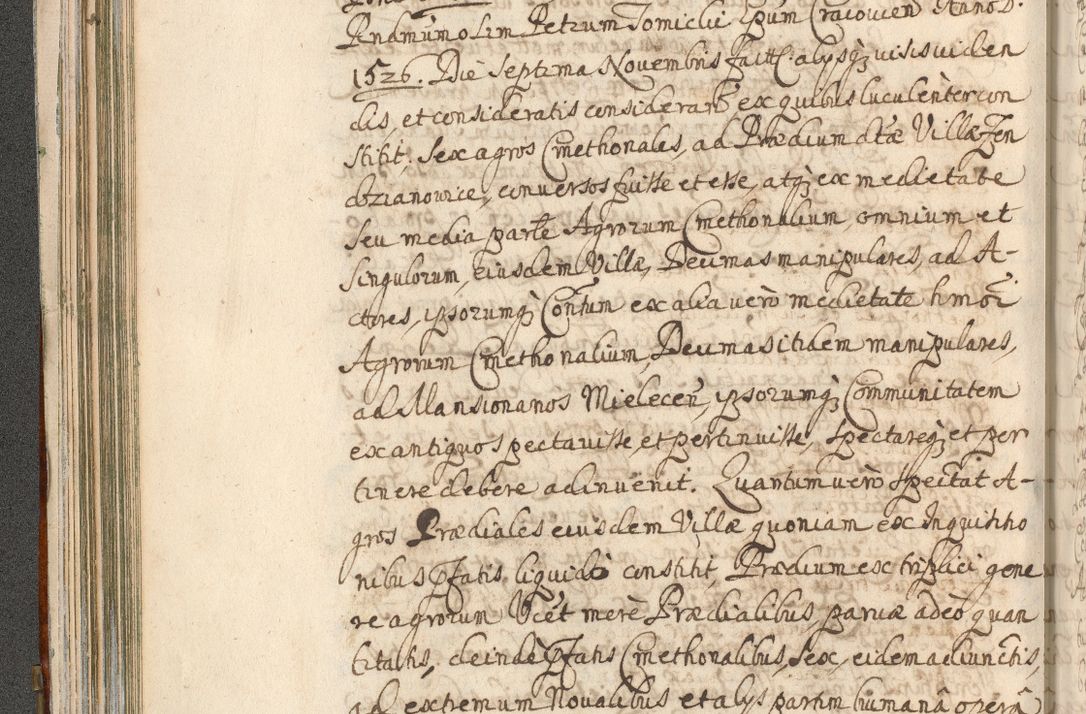 Rndmum olim Petrum Tomicki Epum Cracovien Anno D.
1526. Die Septima Novembris factt: alijsq; visis viden
dis, et consideratis considerand ex quibus luculenter con
stitit, Sex agros Cmethonales, ad Prædium dtæ Villæ Zen
dozianowice, conversos fuisse et esse, atq; ex medietate
seu media parte Agrorum Cmethonalium, omnium et
singulorum, eiusdem Villæ, Decimas manipulares, ad A-
ctores, ipsorumq; Conntum ex alia vero medietate hmoi
Agrorum Cmethonalium, Decimas itidem manipulares,
ad Mansionarios Mielecen, ipsorumq; Communitatem
ex antiquo spectavisse, et pertinuisse, spectareq; et per
tinere debere adinvenit. Quantum vero spectat A-
gros Prædiales eiusdem Villæ quoniam ex Inquisitio
nibus pfatis liquido constitit, Prædium ex triplici gene
re agrorum Vcet mere Prædialibus parvæ adeo quan
titatis, deinde pfatis Cmethonalibus, sex, eidem adiunctis,
ad extremum Novalibus et alijs partim humanâ operâ